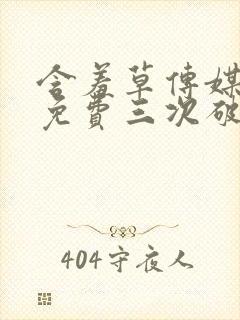 含羞草传媒
免費三次破
404守夜人